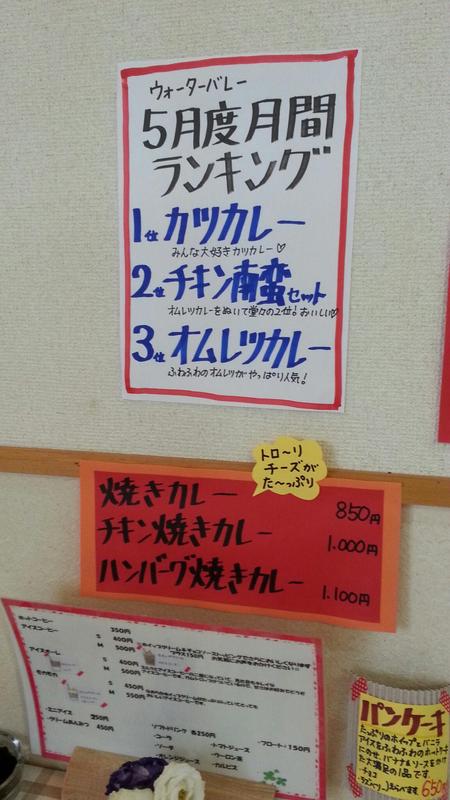 ウォーターバレー
5月度月間
ランキング
1位 カツカレー
みんな大好きカツカレー♡
2位 チキン南蛮セット
オムレツカレーをぬいて堂々の2位！おいしい♡
3位 オムレツカレー
ふわふわのオムレツがやっぱり人気！
トロ〜リ
チーズが
た〜っぷり
焼きカレー 850円
チキン焼きカレー 1.000円
ハンバーグ焼きカレー 1.100円
ホットコーヒー 350円
アイスコーヒー S 400円
M 500円
プラス150円
アイスオーレ S 400円
M 550円
S 450円
M 550円
ミニアイス 250円
クリームあんみつ 450円
ソフトドリンク 各250円
フロート+150円
コーラ
トマトジュース
ソーダ
ウーロン茶
オレンジジュース
カルピス
パンケーキ
たっぷりのホイップとバニラ
アイスをふわふわのホットケーキ
にのせ、バナナ&ソースをかけ
た大満足の1品です。
チョコ
650円